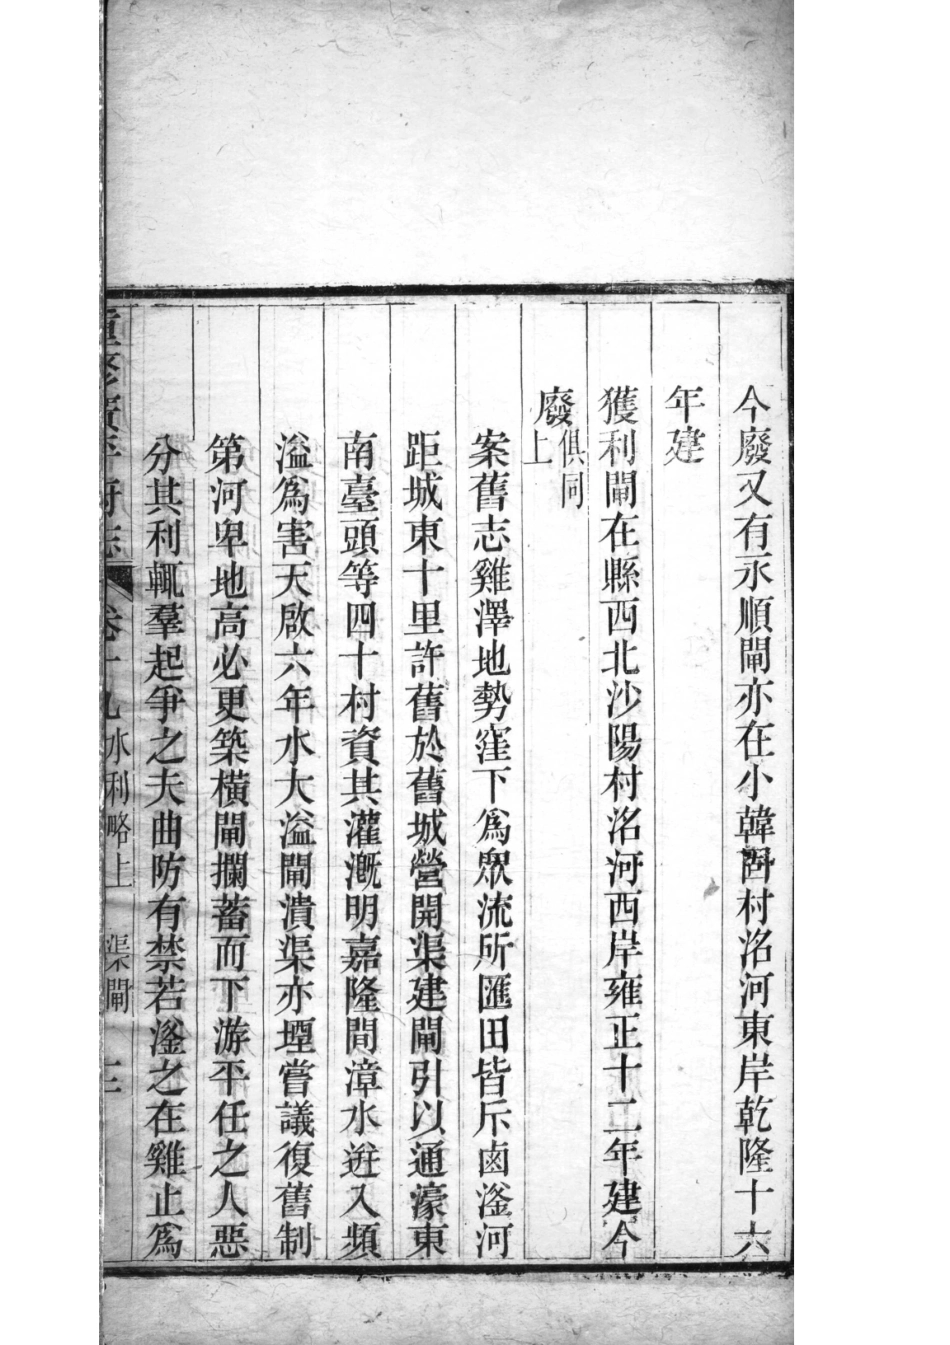 今廢又有永順閘亦在小韓固村洺河東岸乾隆十六
年建
獲利閘在縣西北沙陽村洺河西岸雍正十二年建今
廢俱同上
案舊志雞澤地勢窪下爲眾流所匯田皆斥鹵滏河
距城東十里許舊於舊城營開渠建閘引以通濠東
南臺頭等四十村資其灌漑明嘉隆間漳水迸入頻
溢爲害天啟六年水大溢閘潰渠亦堙嘗議復舊制
第河卑地高必更築橫閘攔蓄而下游平任之人惡
分其利輒羣起爭之夫曲防有禁若滏之在雞止爲
重修廣平府志 卷十九 水利略上 渠閘